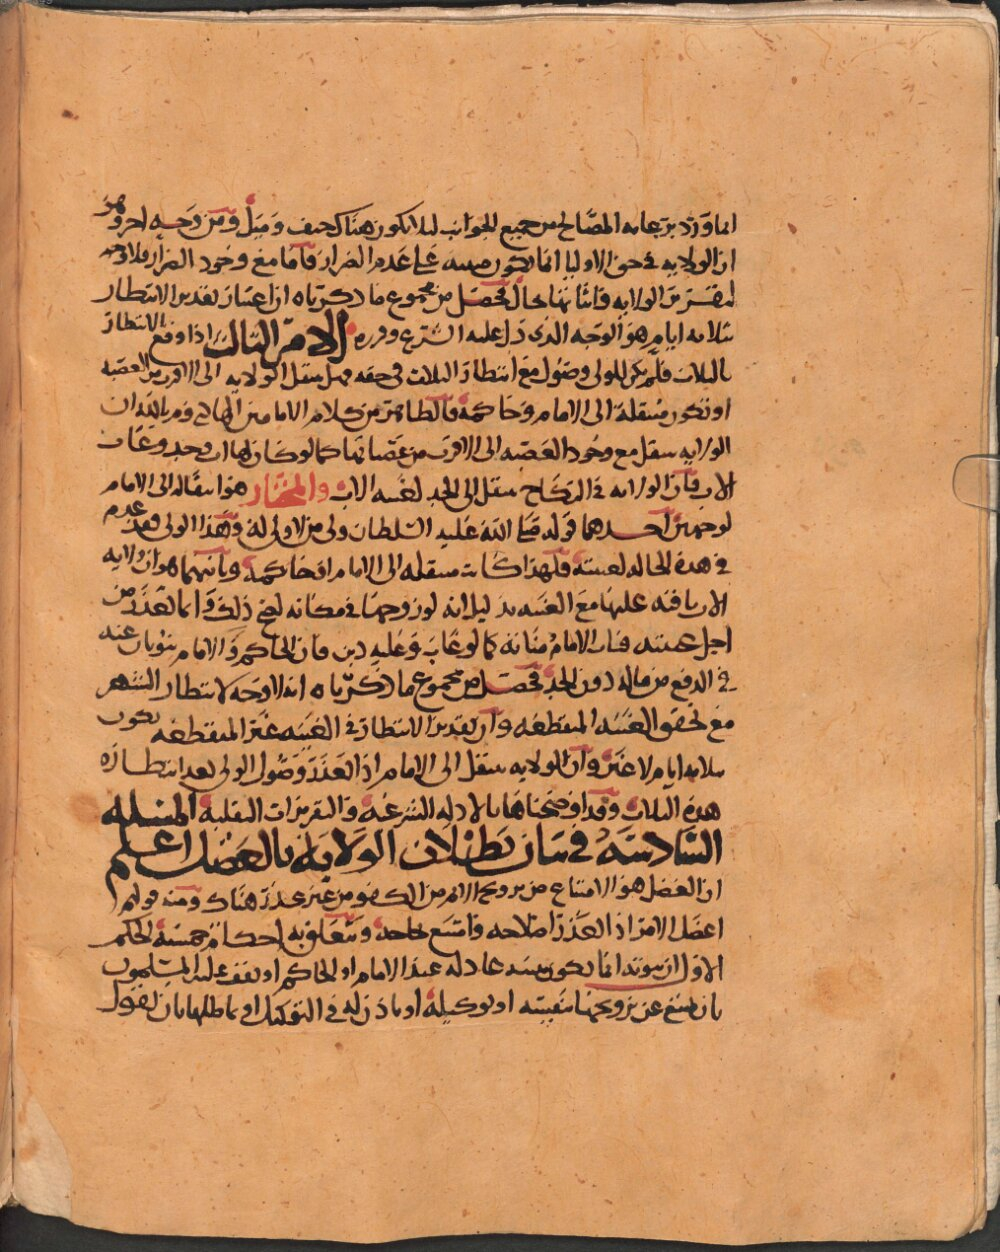 انما ورد برعاية المصالح من جميع الجوانب ليلا يكون هناك حيف وميل ومن وجه اخر وهو
ان الولايه في حق الاوليا انما يكون مبنيه على عدم الضرار فاما مع وجود الضرار فلا وجه
لتقرير الولايه واثباتها بحال فحصل من مجموع ما ذكرناه ان اعتبار تقدير الانتظار
بثلاثة ايام هو الوجه الذي دل عليه الشرع وقرره الامر الثالث اذا وقع الانتظار
بالثلاث فلم يكن للولي وصول مع انتظار الثلاث في حقه فهل ينتقل الولايه الى الاقرب من العصبه
او تكون منتقلة الى الامام وحاكمه فالظاهر من كلام الامامين الهادي والمؤيد بالله ان
الولايه ينتقل مع وجود العصبه الى الاقرب من عصباتها كما لو كان لها اب وجد وغاب
الاب فان الولايه في النكاح ينتقل الى الجد لغيبة الاب والمختار هو انتقاله الى الامام
لوجهين احدهما قوله صلى الله عليه السلطان ولي من لا ولي له وهذا الولي قد عدم
في هذه الحاله لغيبته فلهذا كانت منتقله الى الامام او حاكمه وثانيهما هو ان ولاية
الاب باقيه عليها مع الغيبه بدليل انه لو زوجها في مكانه لصح ذلك وانما تعذر من
اجل غيبته فناب الامام منابه كما لو غاب وعليه دين فان الحاكم والامام ينوبان عنه
في الدفع من ماله دون الجد فحصل من مجموع ما ذكرناه انه لا وجه لانتظار الشهر
مع تحقق الغيبه المنقطعه وان تقدير الانتظار في الغيبه غير المنقطعه يكون
بثلاثة ايام لا غير وان الولايه ينتقل الى الامام اذا تعذر وصول الولي بعد انتظاره
هذه الثلاث وقد اوضحناها بالادله الشرعيه والتقريرات النقلية المسئله
السادسه في بيان بطلان الولاية بالعضل اعلم
ان العضل هو الامتناع من تزويج الايم من الكفو من غير عذر هناك ومنه قولهم
اعضل الامر اذا تعذر اصلاحه وامتنع علاجه وتتعلق به احكام خمسة الحكم
الاول ان ثبوته انما يكون ببينه عادله عند الامام او الحاكم او يقف عليه المسلمون
بان يمتنع عن تزويجها بنفسه او بوكيله او ياذن له في التوكيل او يماطلها بان يقول